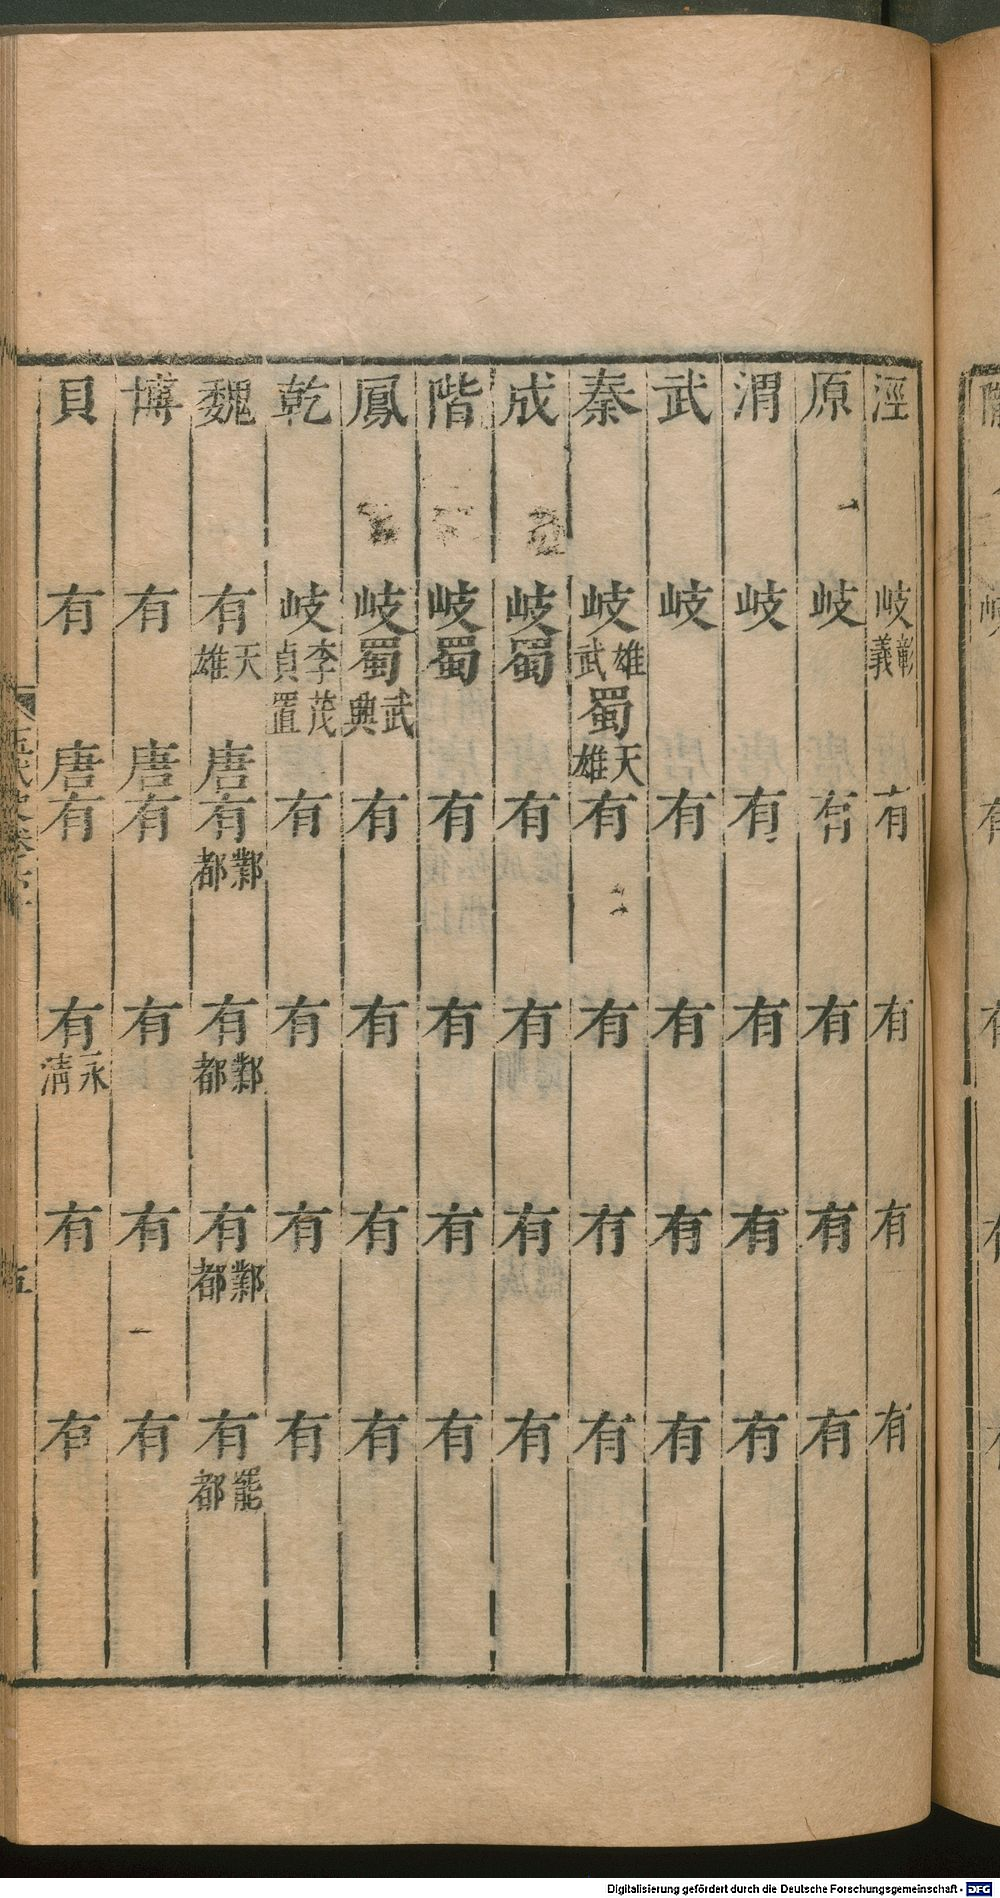 涇 岐彰義 有 有 有 有
原 岐 有 有 有 有
渭 岐 有 有 有 有
武 岐 有 有 有 有
秦 岐雄武蜀天雄 有 有 有 有
成 岐蜀 有 有 有 有
階 岐蜀 有 有 有 有
鳳 岐蜀武興 有 有 有 有
乾 岐李茂貞置 有 有 有 有
魏 有天雄唐 有鄴都 有鄴都 有鄴都 有罷都
博 有唐 有 有 有 有
貝 有唐 有 有永清 有 有
五代史卷六十
五
Digitalisierung gefördert durch die Deutsche Forschungsgemeinschaft - DFG